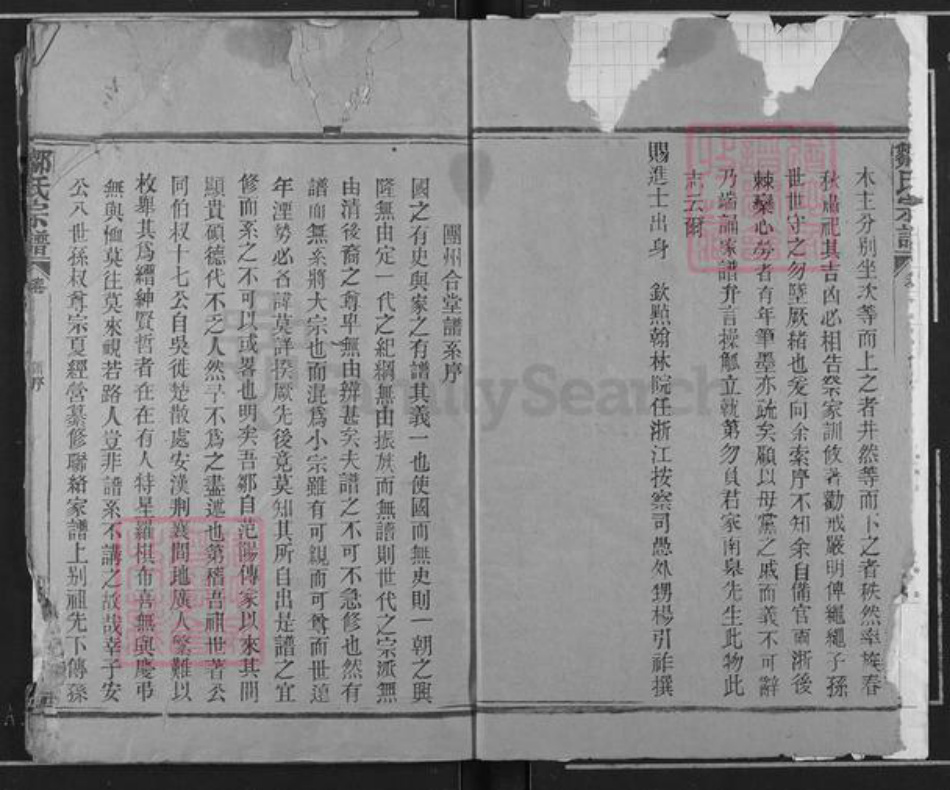 鄒氏宗譜
木主分別坐次等而上之者井然等而下之者秩然率族春
秋肅祀其吉凶必相告祭家訓攸著勸戒嚴明俾繩繩子孫
世世守之勿墜厥緒也爰向余索序不知余自備官兩浙後
棘欒心勞者有年筆墨亦疏矣顧以母黨之戚而義不可辭
乃端誦家譜弁言操觚立就第勿負君家南臯先生此物此
志云爾
賜進士出身 欽點翰林院任浙江按察司愚外甥楊引祚撰
團州合堂譜系序
國之有史與家之有譜其義一也使國而無史則一朝之興
隆無由定一代之紀綱無由振族而無譜則世代之宗派無
由清後裔之尊卑無由辨甚矣夫譜之不可不急修也然有
譜而無系將大宗也而混爲小宗雖有可親而可尊而世遠
年湮勢必各諱莫詳揆厥先後竟莫知其所自出是譜之宜
修而系之不可以或畧也明矣吾鄒自范陽傳家以來其間
顯貴碩德代不乏人然予不爲之盡述也第稽吾祖世著公
同伯叔十七公自吳徙楚散處安漢荆襄間地廣人繁難以
枚舉其爲縉紳賢哲者在在有人特星羅棋布喜無與慶弔
無與恤莫往莫來覩若路人豈非譜系不講之故哉幸于安
公八世孫叔尊宗夏經營纂修聯絡家譜上别祖先下傳孫
鄒氏宗譜
卷
序
FamilySearch